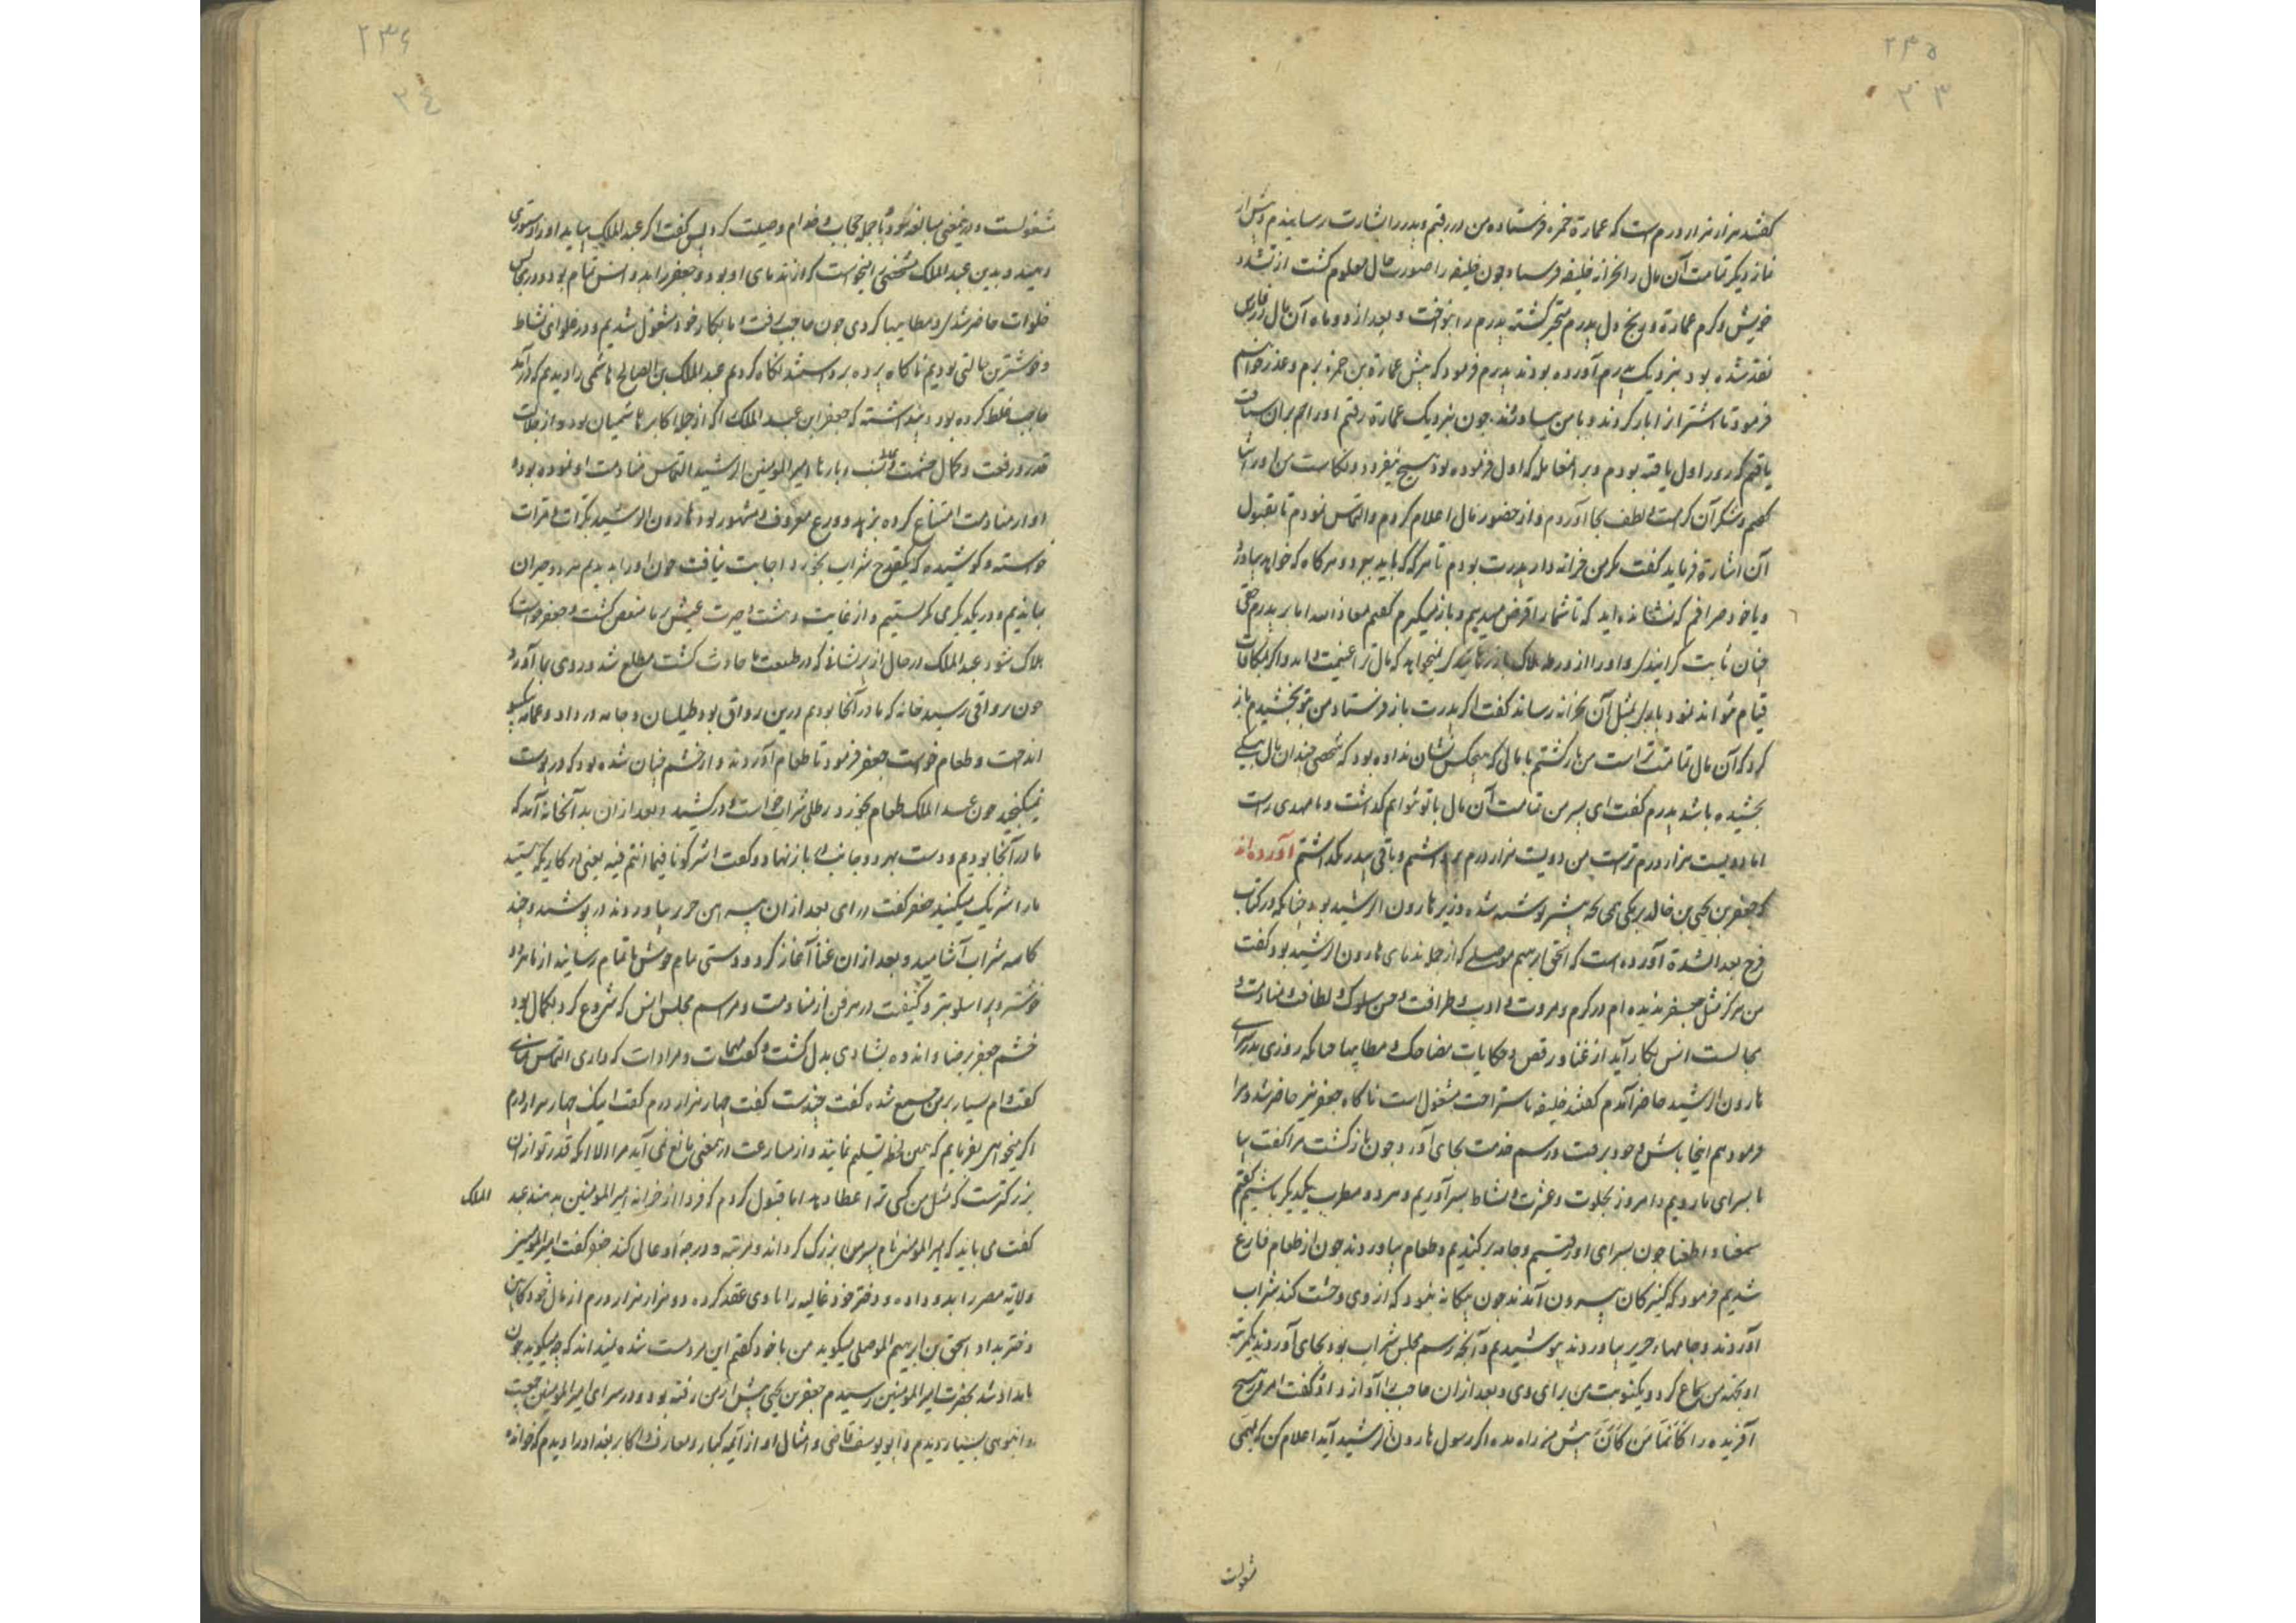 ۲۳۵
۳۰۳
گفتند هزار هزار درم است که عمارة حمزه فرستاده من در رفتم و پدر را بشارت رسانیدم و پیش از
نماز دیگر تمامت آن مال را بخزانه خلیفه فرستاد چون خلیفه را صورت حال معلوم کشت از تشدد
خویش و کرم عمارة و رنج دل پدرم متحیر کشته پدرم را بنواخت و بعد از دو ماه آن مال از فارس
نقد شده بود بنزدیک پدرم آورده بودند پدرم فرمود که پیش عمارة بن حمزه برم و عذر خواهم
فرمود تا اشتران را بار کردند و با من بیاورند چون بنزدیک عمارة رفتم او را هم بران سیاقت
یافتم که روز اول یافته بودم و بر آنچه اول فرموده بود هیچ نیفزود و نکاست من او را ثنا
گفتم و شکر آن کرامت و لطف بجا آوردم و از حضور مال اعلام کردم و التماس نمودم تا بقبول
آن اشارة فرماید گفت مکر من خزانه دار پدرت بودم تا هر که که باید ببرد و هر کاه که خواهد بیاورد
و یا خود صرافم که نشانده اید که تا شما را قرض میدهم و باز میگیرم گفتم معاذ الله اما بر پدرم حقی
چنان ثابت کرانیدی و او را از ورطه هلاک باز رهانیدی که نمیخواهد که مال ترا غنیمت داند و اگر بمکافات
قیام نتواند نمود باری مثل آن بخزانه رساند گفت اگر پدرت باز فرستاد من بتو بخشیدم باز
کرد که آن مال تمامت تراست من باز کشتم با مالی که هیچکس نشان نداده بود که شخصی چندان مال بیکی
بخشیده باشد پدرم گفت ای پسر من تمامت آن مال با تو نتوانم گذاشت و نامهدی راست
اما دویست هزار درم تراست من دویست هزار درم برداشتم و باقی بپدر گذاشتم آورده اند
که جعفر بن یحیی بن خالد برمکی وزیر هارون الرشید بود چنانکه در کتاب
فرج بعد الشدة آورده است که اسحق ابرهیم موصلی که از جمله ندمای هارون الرشید بود گفت
من هرگز مثل جعفر ندیده ام در کرم و مروت و ادب و ظرافت و حسن سلوک و لطافت و منادمت و
مجالست انس بکار آید از غنا و رقص و حکایات مضاحک و مطایبها چنانکه روزی بدر سرای
هارون الرشید حاضر آمدم گفتند خلیفه باستراحت مشغول است ناکاه جعفر نیز حاضر شد و مرا
فرمود هم اینجا باش و خود برفت و رسم خدمت بجای آورد و چون باز کشت مرا گفت بیا
تا بسرای ما رویم و امروز بخلوت و عشرت و نشاط بسر آوریم و هر دو مطرب یکدیگر باشیم گفتم
سمعا و اطعنا چون بسرای او رفتیم و جامه برکندیم و طعام بیاوردند چون از طعام فارغ
شدیم فرمود که کنیزکان بیرون آمدند چون بیکانه نبود که از وی وحشت کند شراب
آوردند و جامهاء حریر بیاوردند پوشیدیم و آنچه رسم مجلس شراب بود بجای آوردند یکمرتبه
او بجهة من سماع کرد و یکنوبت من برای وی و بعد از ان حاجب را آواز داد و گفت امروز هیچ
آفریده را کائنا من کان پیش من راه مده اگر رسول هارون الرشید آید اعلام کن که بمهمی
مشغولست
۲۳۶
۳۰۴
مشغولست و درین معنی مبالغه نمود و با جمله حجاب و خدام وصیت کرد پس گفت اگر عبد الملک بیاید او را دستوری
دهید و بدین عبد الملک شخصی را میخواست که از ندمای او بود و جعفر را بدو انس تمام بود و در مجالس
خلوات حاضر شدی و مطایبها کردی چون حاجب برفت و ما بکار خود مشغول شدیم و در غلوای نشاط
و خوشترین حالتی بودیم ناکاه پرده برداشتند نکاه کردیم عبد الملک بن الصالح هاشمی را دیدیم که درآمد
حاجب غلط کرده بود و پنداشته که جعفر این عبد الملک را که از جمله اکابر هاشمیان بود و از جلالت
قدر و رفعت و کمال حشمت و نسب و بارها امیر المومنین الرشید التماس منادمت او نموده بود و
او از منادمت امتناع کرده بزهد و ورع معروف و مشهور بود هارون الرشید بکرات و مرات
خواسته و کوشیده که یکقدح شراب بخورد اجابت نیافت چون او را بدیدیم هر دو حیران
بماندیم و در یکدیگر می نگریستیم و از غایت دهشت و حیرت عیش بر ما منغص کشت و جعفر خواست تا
هلاک شود عبد الملک در حال از پریشانی که در طبیعت ما حادث کشت مطلع شد و روی بما آورد
چون برواقی رسید خانه که ما در آنجا بودیم در پن رواق بود طیلسان و جامه در داد و عمامه یکسو
انداخت و طعام خواست جعفر فرمود تا طعام آوردند و از خشم چنان شده بود که در پوست
نمیگنجید چون عبد الملک طعام بخورد رطلی شراب خواست و درکشید و بعد از ان بدر آنخانه آمد که
ما در آنجا بودیم و دست بهر دو جانب باز نهاد و گفت اشرکونا فیما انتم فیه یعنی در کاری که هستید
ما را شریک میکنید جعفر گفت درآی بعد از ان پیراهن حریر بیاوردند در پوشید و چند
کاسه شراب آشامید و بعد از ان غنا آغاز کرد و دستی تمام خوش تا تمام رسانید از ما هر دو
خوشتر و بر اسلوبتر و کیفیت در هر فن از منادمت و مراسم مجلس انس که شروع کرد بکمال بود
خشم جعفر برضا و اندوه بشادی بدل کشت و گفت مهمات و مرادات که داری التماس نمای
گفت وام بسیار بر من جمع شده گفت چندست گفت چهار هزار درم گفت اینک چهار هزار درم
اگر میخواهی بفرمایم که همین لحظه تسلیم نمایند و از مسارعت در این معنی مانع نمی آید مرا الا آنکه قدر تو از ان
بزرگترست که مثل من کسی ترا عطا دهد اما قبول کردم که فردا از خزانه امیر المومنین بدهند عبد الملک
گفت می باید که امیر المومنین نام پسر من بزرگ کرداند و مرتبه و درجه او عالی کند جعفر گفت امیر المومنین
ولایة مصر را بدو داده و دختر خود غالیه را با وی عقد کرده دو هزار هزار درم از مال خود کابین
دختر بداد اسحق بن ابرهیم الموصلی میگوید من با خود گفتم این مرد مست شده نمیداند که چه میگوید چون
بامداد شد بحضرت امیر المومنین رسیدم جعفر بن یحیی پیش از من رفته بود و در سرای امیر المومنین جمعیت
و انبوهی بسیار دیدم و ابو یوسف قاضی و امثال او از ائمه کبار و معارف و اکابر بغداد را دیدم که خوانده